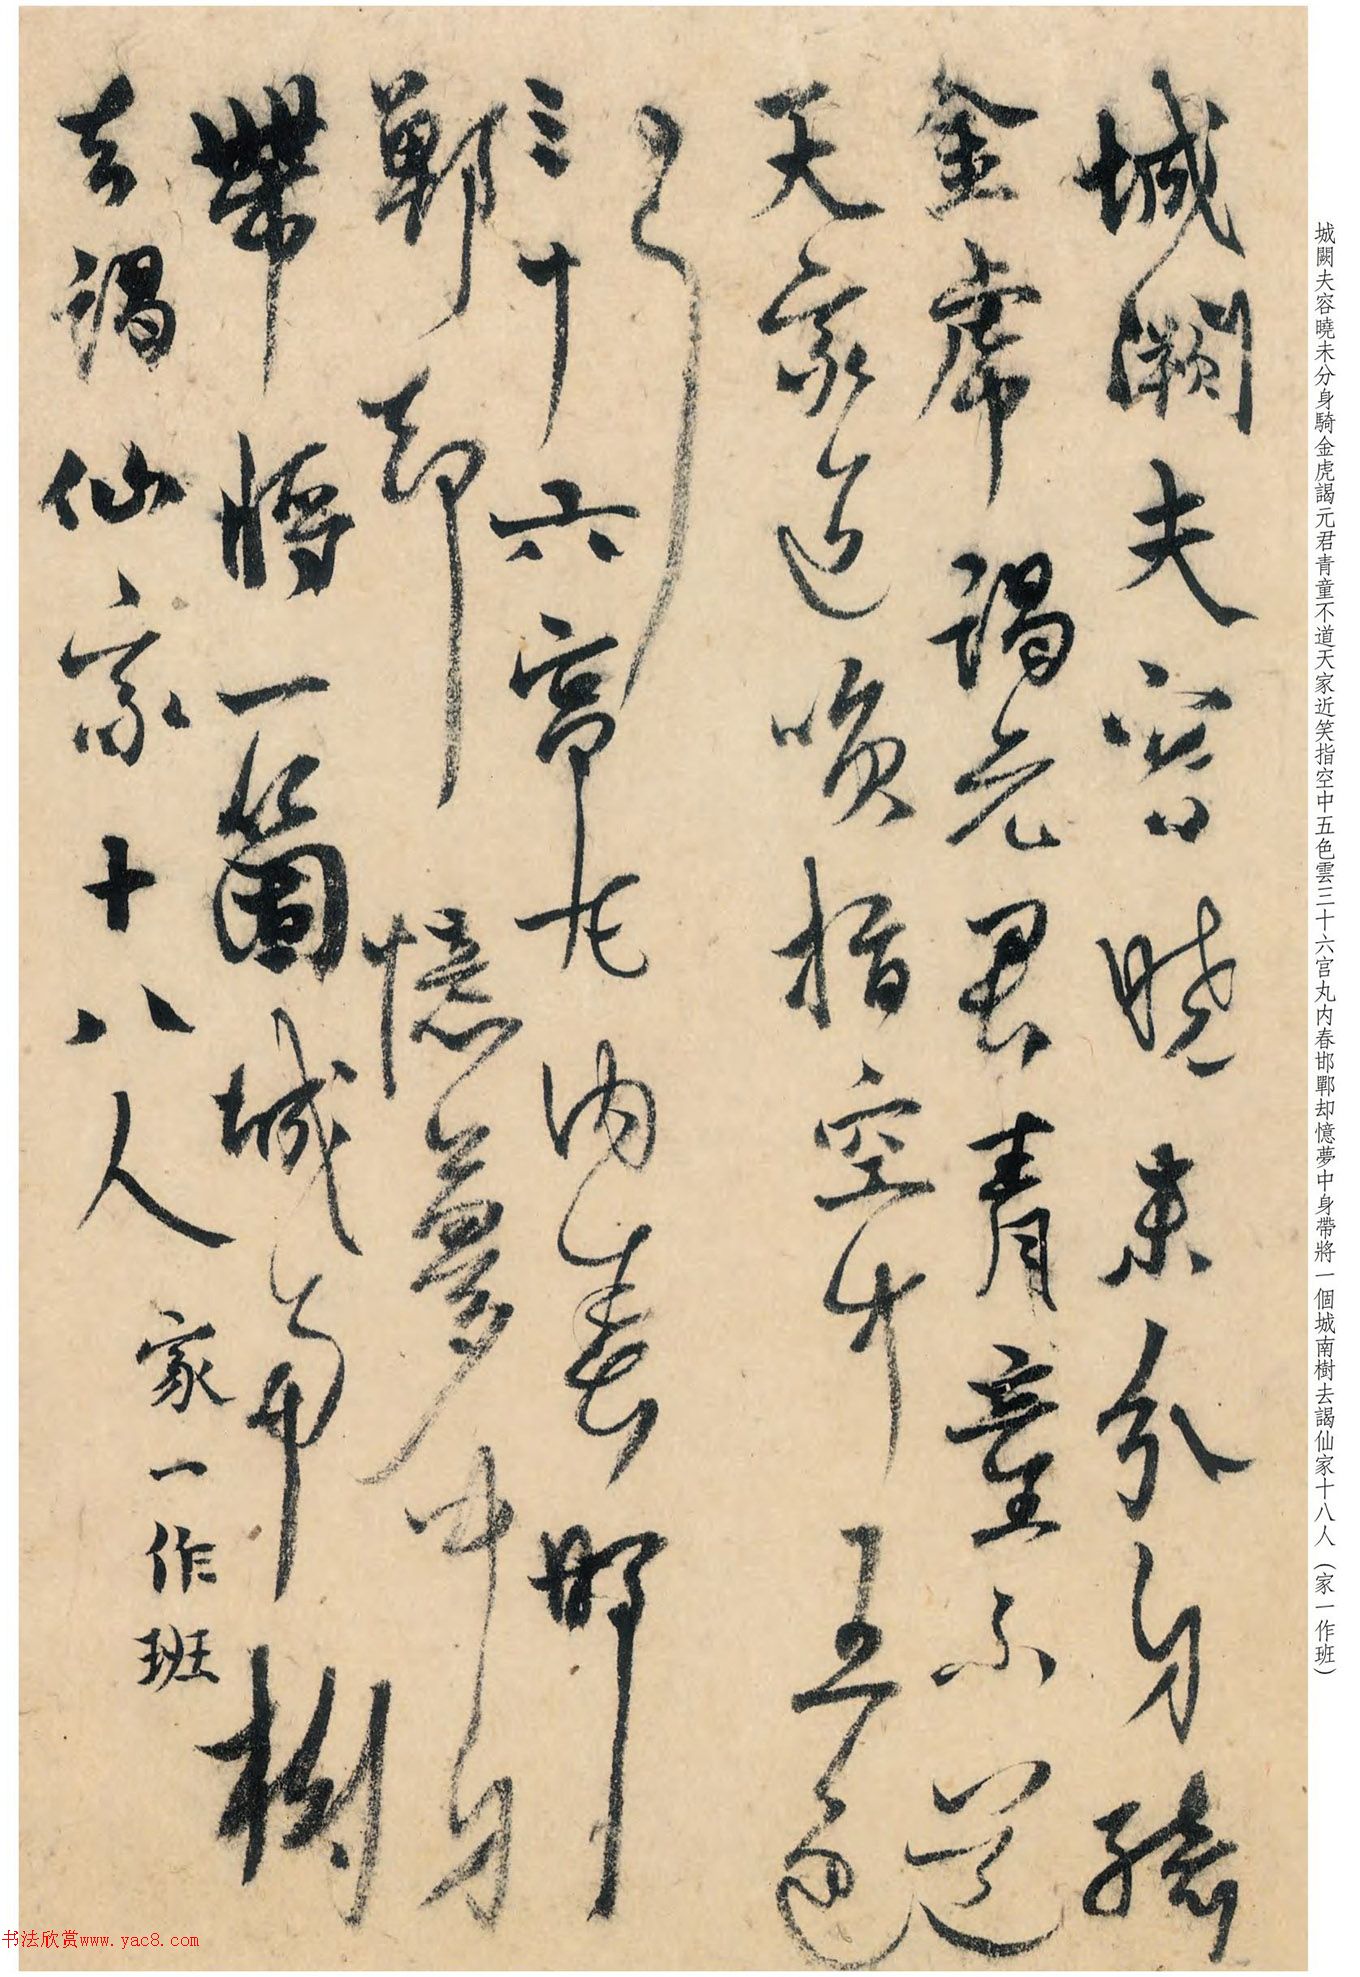 城闕夫容曉未分身騎
金虎謁元君青童不道
天家近笑指空中五色
雲
三十六宮丸内春邯
鄲却憶夢中身
帶將一箇城南樹
去謁仙家十八人
家一作班
城闕夫容曉未分身騎金虎謁元君青童不道天家近笑指空中五色雲三十六宮丸内春邯鄲却憶夢中身帶將一個城南樹去謁仙家十八人（家一作班）
书法欣赏www.yac8.com